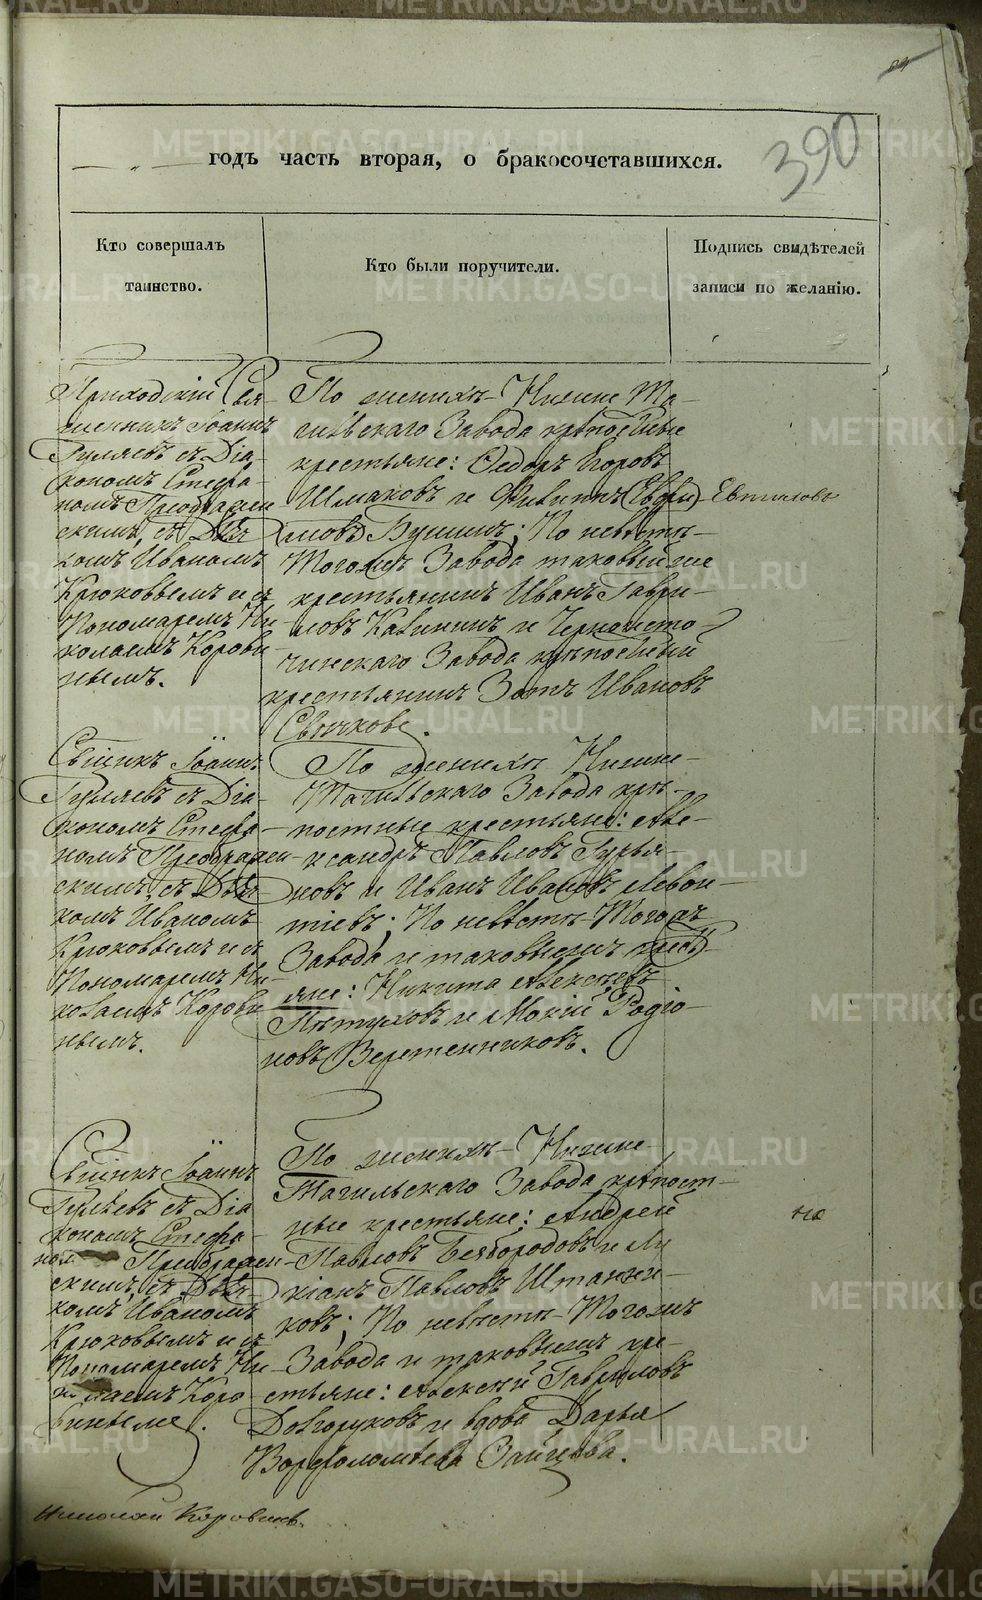 390
годъ часть вторая, о бракосочетавшихся.
Кто совершалъ
таинство.
Кто были поручители.
Подпись свидѣтелей
записи по желанію.
Приходскій Свя-
щенникъ Іоаннъ
Гуляевъ съ Діа-
кономъ Стефа-
номъ Преображен
скимъ, съ Дья-
комъ Иваномъ
Крюковымъ и съ
Пономаремъ Ни-
колаемъ Корови
нымъ.
По женихѣ Нижне Та-
гильскаго Завода крѣпостные
крестьяне: Ѳедоръ Егоровъ
Шмаковъ и Филиппъ
мовъ Бушинъ; По невѣстѣ
Тогожъ Завода таковыйже
крестьянинъ Иванъ Гаври-
ловъ Калининъ и Черноисто-
чинскаго Завода крѣпостный
крестьянинъ Зотъ Ивановъ
Свѣчковъ.
Сващикъ Іоаннъ
Гуляевъ съ Діа-
кономъ Стефа-
номъ Преображен-
скимъ, съ Дья-
комъ Иваномъ
Крюковымъ и съ
Пономаремъ Ни-
колаемъ Корови
нымъ.
По женихѣ Нижне-
Тагильскаго Завода крѣ-
постные крестьяне: Але-
ксандръ Павловъ Гурья-
новъ и Иванъ Ивановъ Левон-
тіевъ; По невѣстѣ Тогожъ
Завода и таковыежъ кресть-
яне: Никита Алексѣевъ
Пѣтуховъ и Мокій Родіо-
новъ Веретенниковъ.
Іоаннъ
Гуляевъ съ Діа
кономъ Стефа-
ном Преображен-
скимъ, съ Дья-
комъ Иваномъ
Крюковымъ и съ
Пономаремъ Ни-
лаемъ Коро
виным.
По женихѣ Нижне-
Тагильскаго Завода крѣпост-
ные крестьяне: Андрей
Павловъ Безбородовъ и Лу
кіанъ Павловъ Штанни-
ковъ; По невѣстѣ Тогожъ
Завода и таковыежъ кре-
стьяне: Алексѣй Гавриловъ
Долгоруковъ и вдова Дарья
Варфоломѣева Зайцева.
но
Николай Коровинъ.
METRIKI.GASO-URAL.RU